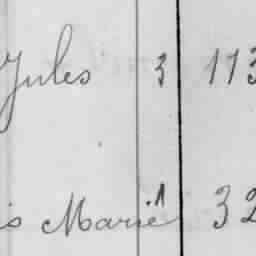 Jules 3 113
is Marie 1 32